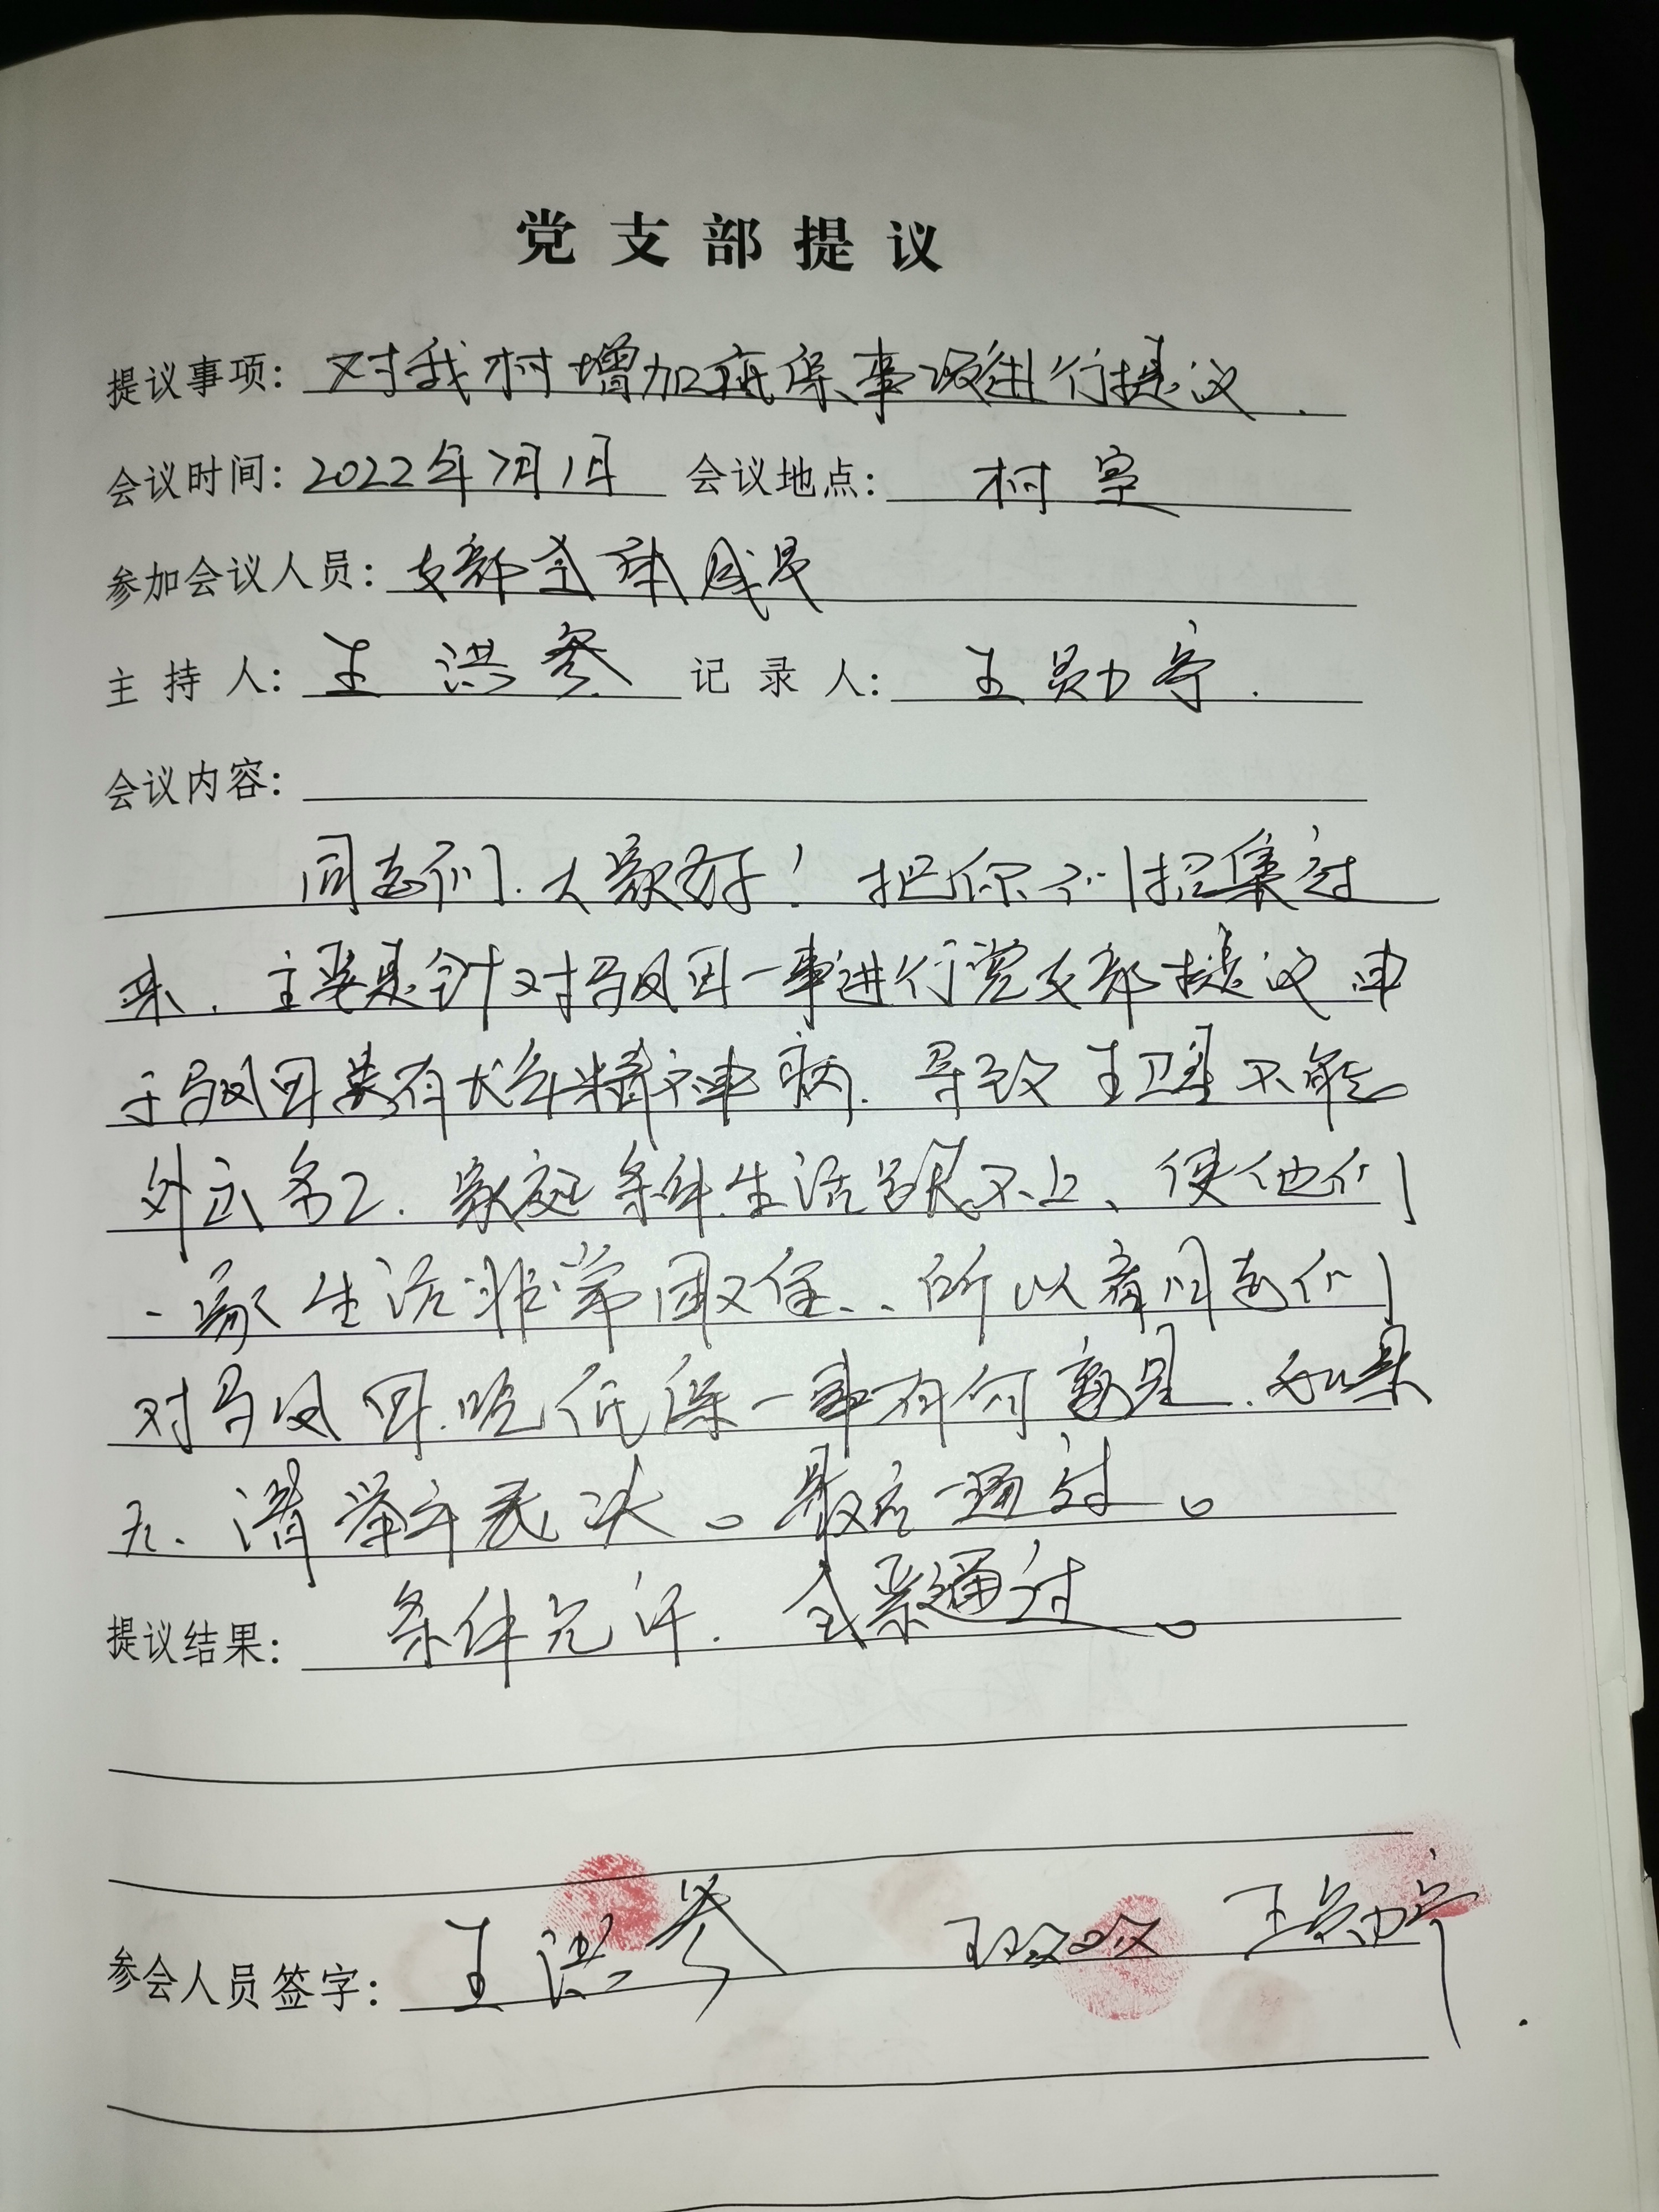 党支部提议
提议事项：对我村增加底保事项进行提议.
会议时间：2022年7月1日 会议地点：村室
参加会议人员：支部全体成员
主持人：王洪参 记录人：王勋宁.
会议内容：
同志们.大家好！把你们招集过
来.主要是针对马凤丹一事进行党支部提议 由
于马凤丹患有长年精神病.导致王卫星不能
外出务工.家庭条件生活跟不上、使他们
一家生活非常困难..所以看同志们
对马凤丹.吃低保一事有何意见.如果
无、请举手表决。最后一致通过。
提议结果：条件允许.全票通过。
参会人员签字：王洪参 王勋宁